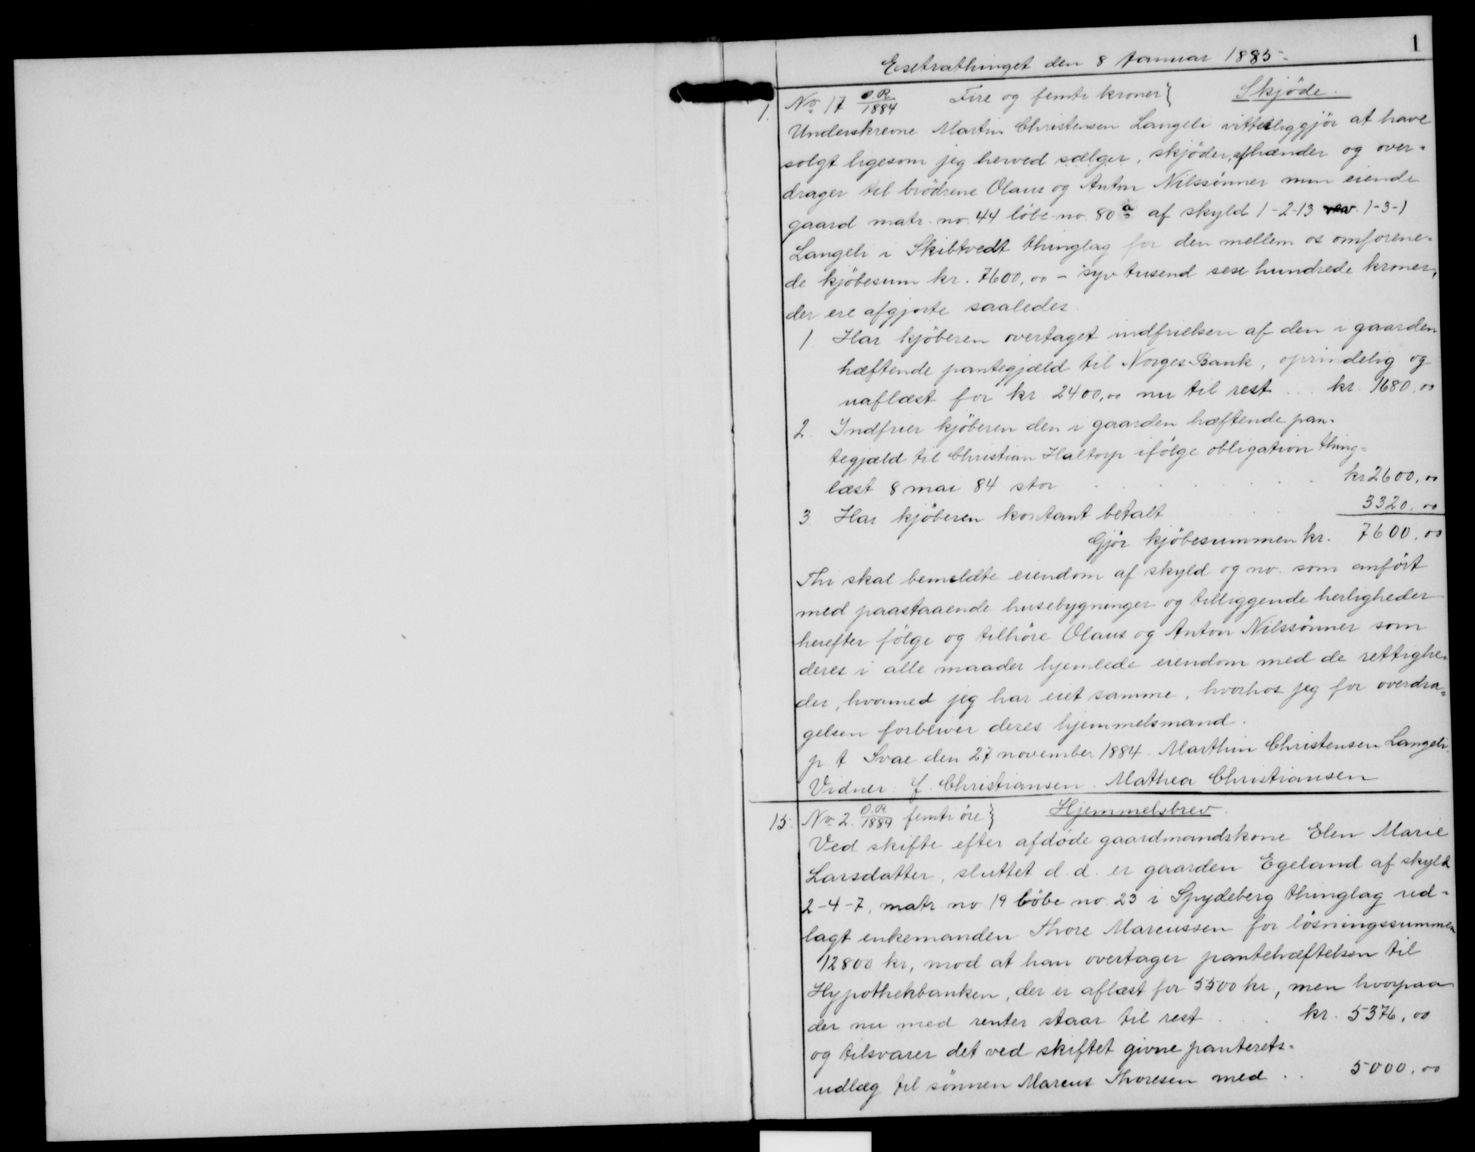 1
Exetrathinget den 8 Januar 1885.
1. No. 17 O.R. 1884 Fire og femti kroner} Skjöde.
Underskrevne Martin Christensen Langeli vitterliggjör at have
solgt ligesom jeg herved sælger, skjöder, afhænder og over-
drager til brödrene Olaus og Anton Nilssönner min eiende
gaard matr. no. 44 löbe no. 80 a af skyld 1-2-13 rev. 1-3-1
Langeli i Skibtvedt thinglag for den mellem os omforene-
de kjöbesum kr. 7600,00 - syv tusend sex hundrede kroner,
der ere afgjorte saaledes
1 Har kjöberen overtaget indfrielsen af den i gaarden
hæftende pantegjæld til Norges Bank, oprindelig og
uaflæst for kr. 2400,00 nu til rest ... kr. 1680,00
2. Indfrier kjöberen den i gaarden hæftende pan-
tegjæld til Christian Haltorp ifölge obligation thing-
læst 8 mai 84 stor . . . . . . kr 2600,00
3. Har kjöberen kontant betalt . . 3320.00
Gjör kjöbesummen kr. 7600.00
Thi skal bemeldte eiendom af skyld og no. som anfört
med paastaaende husebygninger og tilliggende herligheder
herefter fölge og tilhöre Olaus og Anton Nilssönner som
deres i alle maader hjemlede eiendom med de rettighe-
der, hvormed jeg har eiet samme, hvorhos jeg for overdra-
gelsen forbliver deres hjemmelsmand.
p t Svae den 27 november 1884. Marthin Christensen Langeli.
Vidner: J. Christiansen. Mathea Christiansen
15. No. 2. O.R. 1884 femti öre} Hjemmelsbrev.
Ved skifte efter afdöde gaardmandskone Elen Marie
Larsdatter, sluttet d. d. er gaarden Egeland af skyld
2-4-7, matr no 19 löbe no. 23 i Spydeberg thinglag ud-
lagt enkemanden Thore Marcussen for lösningssummen
12800 kr, mod at han overtager pantehæftelsen til
Hypothekbanken, der er aflæst for 5500 kr, men hvorpaa
der nu med renter staar til rest . . . kr. 5376,00
og tilsvarer det ved skiftet givne panterets-
udlæg til sönnen Marcus Thoresen med .. 5000.00